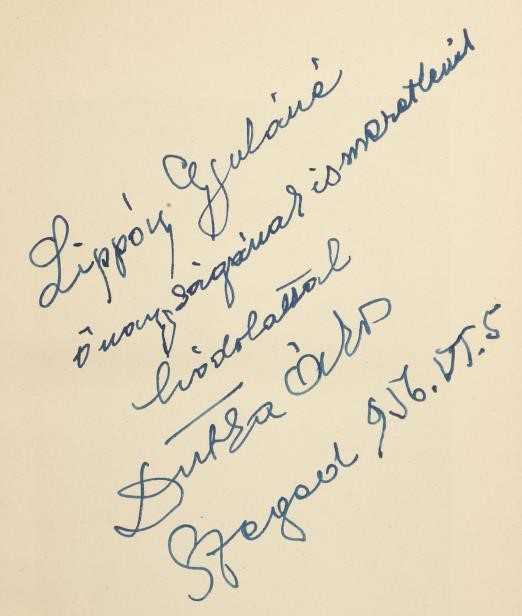 Lippóy Gyuláné
őnagyságának ismeretlenül
hódolattal
Dutka Ákos
Szeged 956. VI. 5